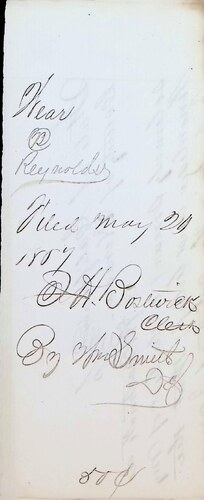 Wear
@
Reynolds
Filed May 29
1867
H. Bostwick
Clerk
By Wm Smith
DC
50¢